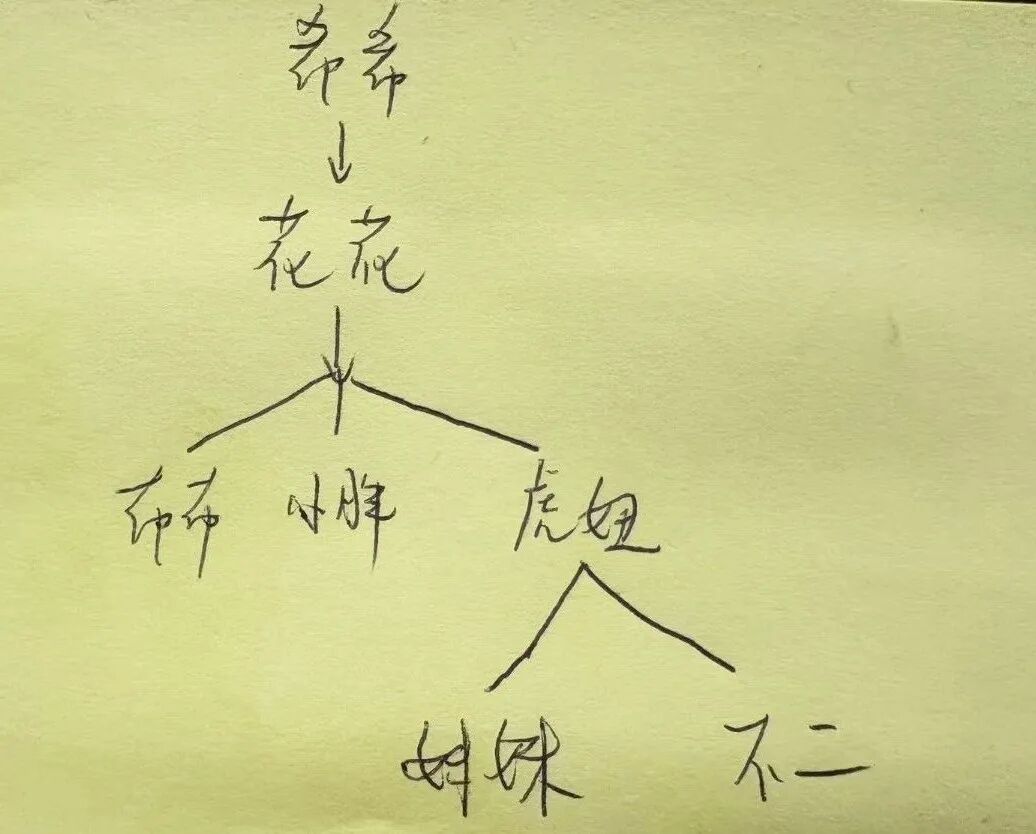 希希
花花
布布 小胖 虎妞
妹妹 不二